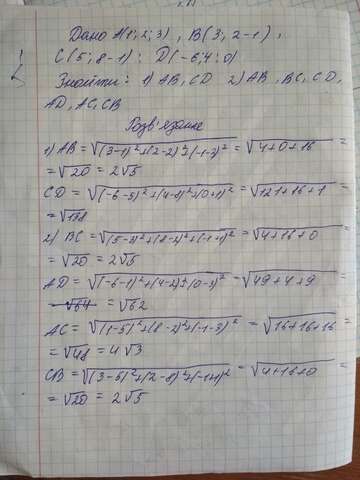 Дано A(1;2;3), B(3;2-1);
C(5;8-1): D(-6;4:0)
Знайти: 1) AB, CD 2) AB, BC, CD,
AD, AC, CB
Розв'язання
1) AB = √(3-1)²+(2-2)²+(-1-3)² = √4+0+16 =
= √20 = 2√5
CD = √(-6-5)²+(4-8)²+(0+1)² = √121+16+1 =
= √138
2) BC = √(5-3)²+(8-2)²+(-1+1)² = √4+16+0 =
= √20 = 2√5
AD = √(-6-1)²+(4-2)²+(0-3)² = √49+4+9 =
= √64 = √62
AC = √(1-5)²+(8-2)²+(-1-3)² = √16+16+16 =
= √48 = 4√3
CB = √(3-5)²+(2-8)²+(-1+1)² = √4+16+0 =
= √20 = 2√5